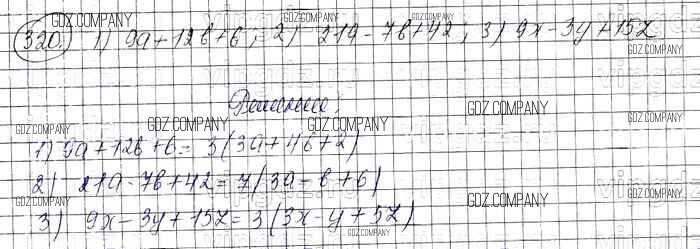 320. 1) 9a+12b+6; 2) 21a-7b+42; 3) 9x-3y+15z
Решение:
1) 9a+12b+6= 3(3a+4b+2)
2) 21a-7b+42=7(3a-b+6)
3) 9x-3y+15z=3(3x-y+5z)
GDZ.COMPANY
GDZ.COMPANY
GDZ.COMPANY
GDZ.COMPANY
GDZ.COMPANY
GDZ.COMPANY
GDZ.COMPANY
GDZ.COMPANY
GDZ.COMPANY
GDZ.COMPANY
GDZ.COMPANY
GDZ.COMPANY
GDZ.COMPANY